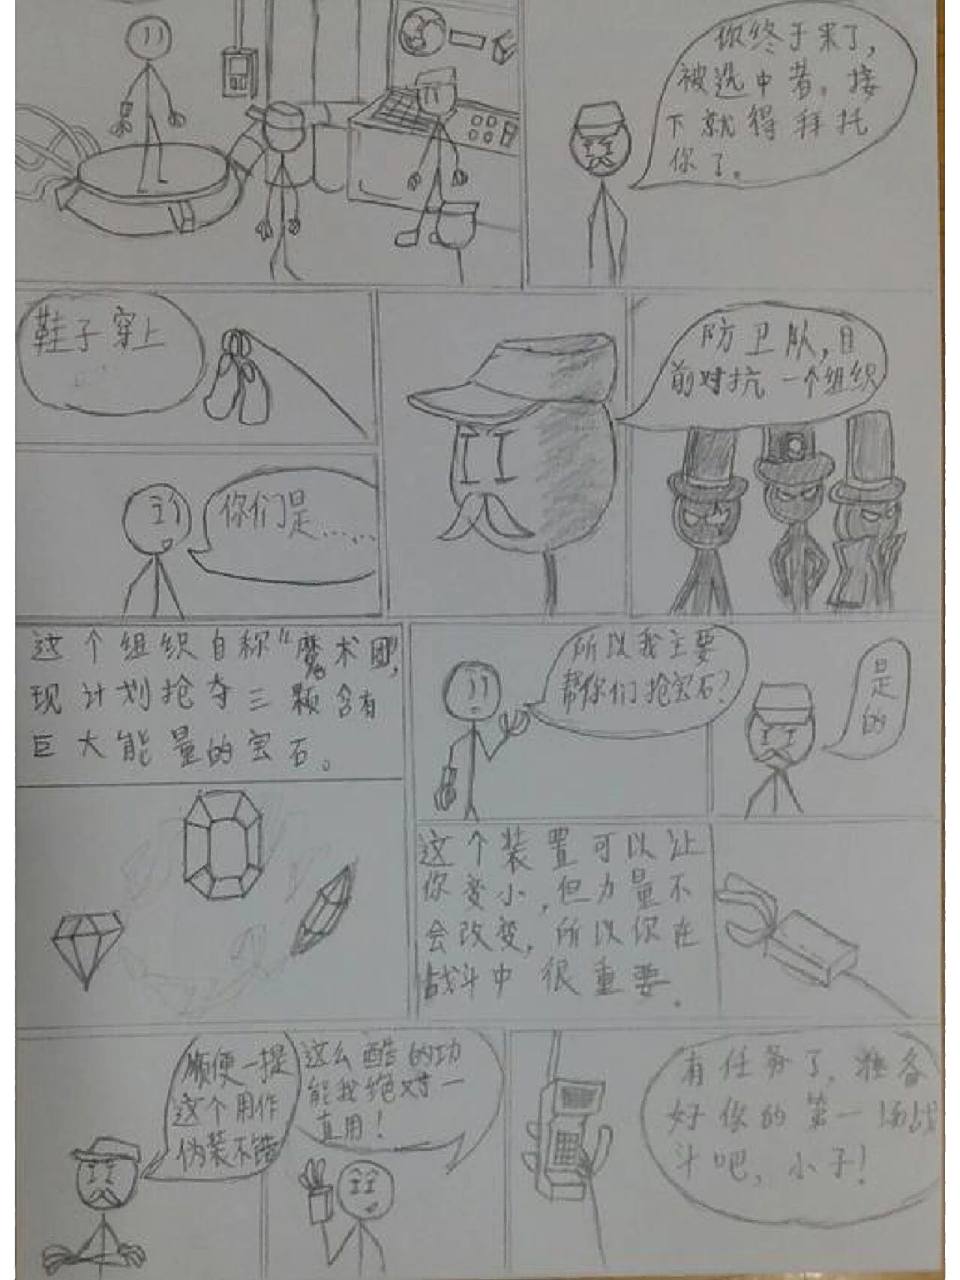 你终于来了，
被选中者。接
下就得拜托
你了。
鞋子穿上
你们是……
防卫队，目
前对抗一个组织
这个组织自称“魔术团”，
现计划抢夺三颗含有
巨大能量的宝石。
所以我主要
帮你们抢宝石？
是
的
这个装置可以让
你变小，但力量不
会改变，所以你在
战斗中很重要。
顺便一提
这个用作
伪装不错
这么酷的功
能我绝对一
直用！
有任务了，准备
好你的第一场战
斗吧，小子！